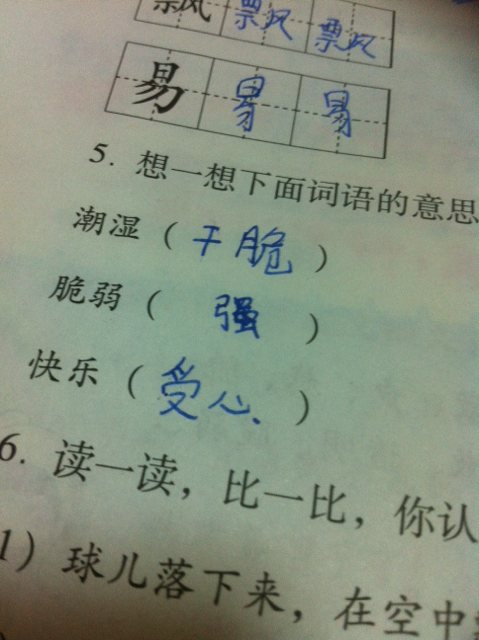 飘 飘 飘
易 易 易
5. 想一想下面词语的意思
潮湿（干脆）
脆弱（强）
快乐（受心、）
6. 读一读，比一比，你认
1）球儿落下来，在空中